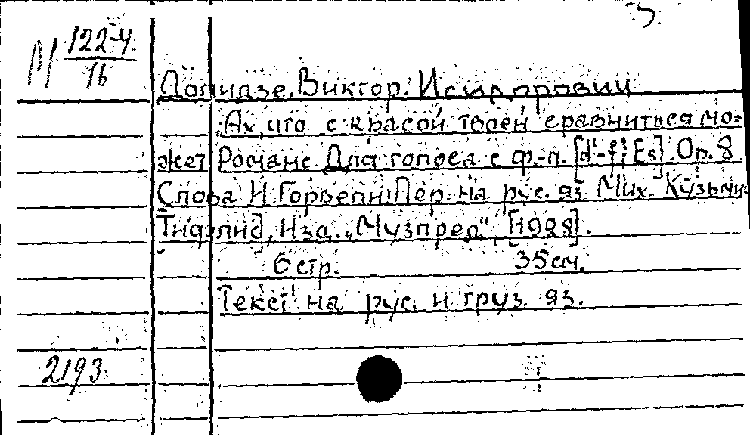 М 122-4
16
Долидзе, Виктор Исидорович
Ах, что с красой твоей сравниться мо-
жет Романс Для голоса с ф.-п. [d'-f; Es]. Op. 8
Слова И Пер. на рус. яз. Мих. Кузьми
Тифлис], Изд. „Музпред", [1928].
6 стр. 35 см.
Текст на рус. и груз. яз.
2193